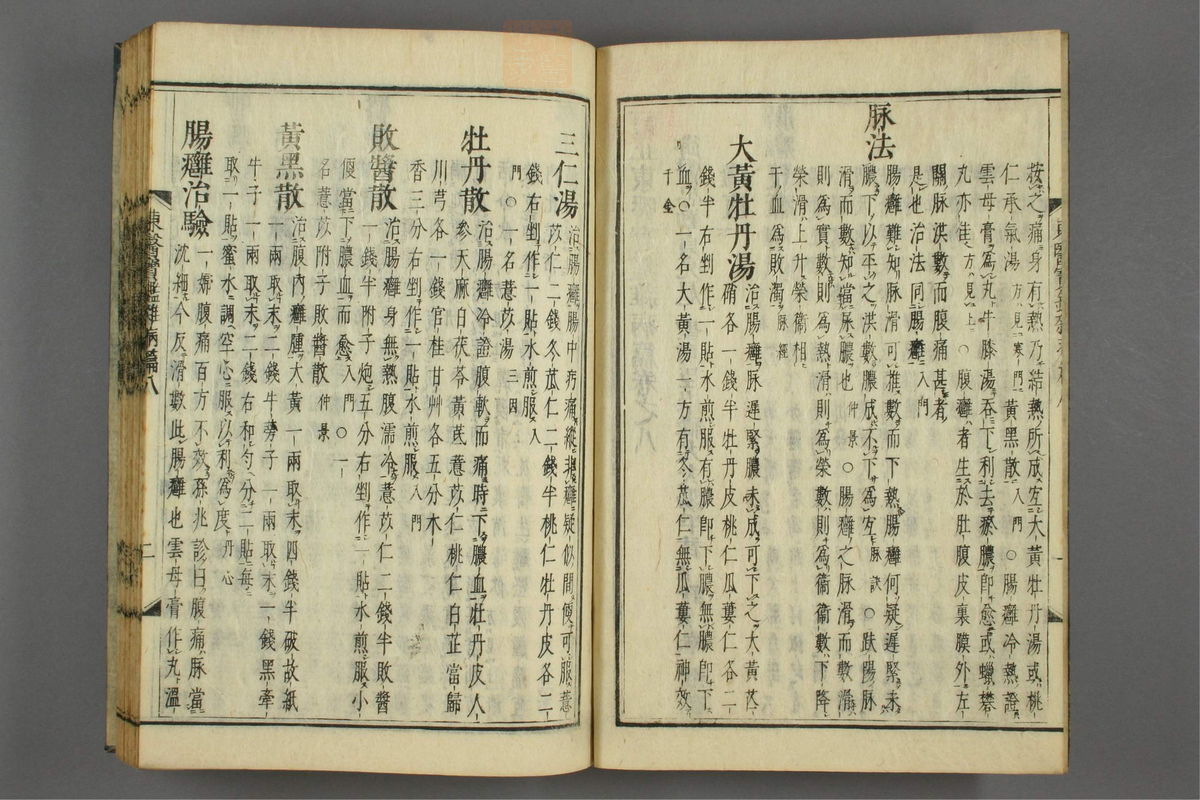 按之痛身有熱乃結熱所成宜大黃牡丹湯或桃
仁承氣湯方見寒門黃黑散入門○腸癰冷熱證
雲母膏爲丸牛膝湯吞下利去瘀膿卽愈或蠟礬
丸亦佳方見上○腹癰者生於肚腹皮裏膜外左
關脉洪數而腹痛甚者
是也治法同腸癰入門
脉法
腸癰難知脉滑可推數而下熱腸癰何疑遲緊未
膿下以平之洪數膿成不下爲宜脉訣○趺陽脉
滑而數知當屎膿也仲景○腸癰之脉滑而數滑
則爲實數則爲熱滑則爲榮數則爲衛衛數下降
榮滑上升榮衛相
干血爲敗濁脉經
大黃牡丹湯
治腸癰脉遲緊膿未成可下之大黃芒
硝各一錢半牡丹皮桃仁瓜蔞仁各二
錢半右剉作一貼水煎服有膿卽下膿無膿卽下
血○一名大黃湯一方有冬瓜仁無瓜蔞仁神效
千金
三仁湯
治腸癰腸中㽲痛縱非癰疑似間便可服薏
苡仁二錢冬瓜仁二錢半桃仁牡丹皮各二
錢右剉作一貼水煎服入
門○一名薏苡湯三因
牡丹散
治腸癰冷證腹軟而痛時下膿血牡丹皮人
參天麻白茯苓黃芪薏苡仁桃仁白芷當歸
川芎各一錢官桂甘艸各五分木
香三分右剉作一貼水煎服入門
敗醬散
治腸癰身無熱腹濡冷薏苡仁二錢半敗醬
一錢半附子炮五分右剉作一貼水煎服小
便當下膿血而愈入門○一
名薏苡附子敗醬散仲景
黃黑散
治腹內癰腫大黃一兩取末四錢半破故紙
一兩取末二錢牛蒡子一兩取末一錢黑牽
牛子一兩取末二錢右和勻分二貼每
取一貼蜜水調空心服以利爲度丹心
腸癰治驗
一婦腹痛百方不效孫兆診曰腹痛脉當
沈細今反滑數此腸癰也雲母膏作丸溫
東醫寶鑑雜病篇八
二